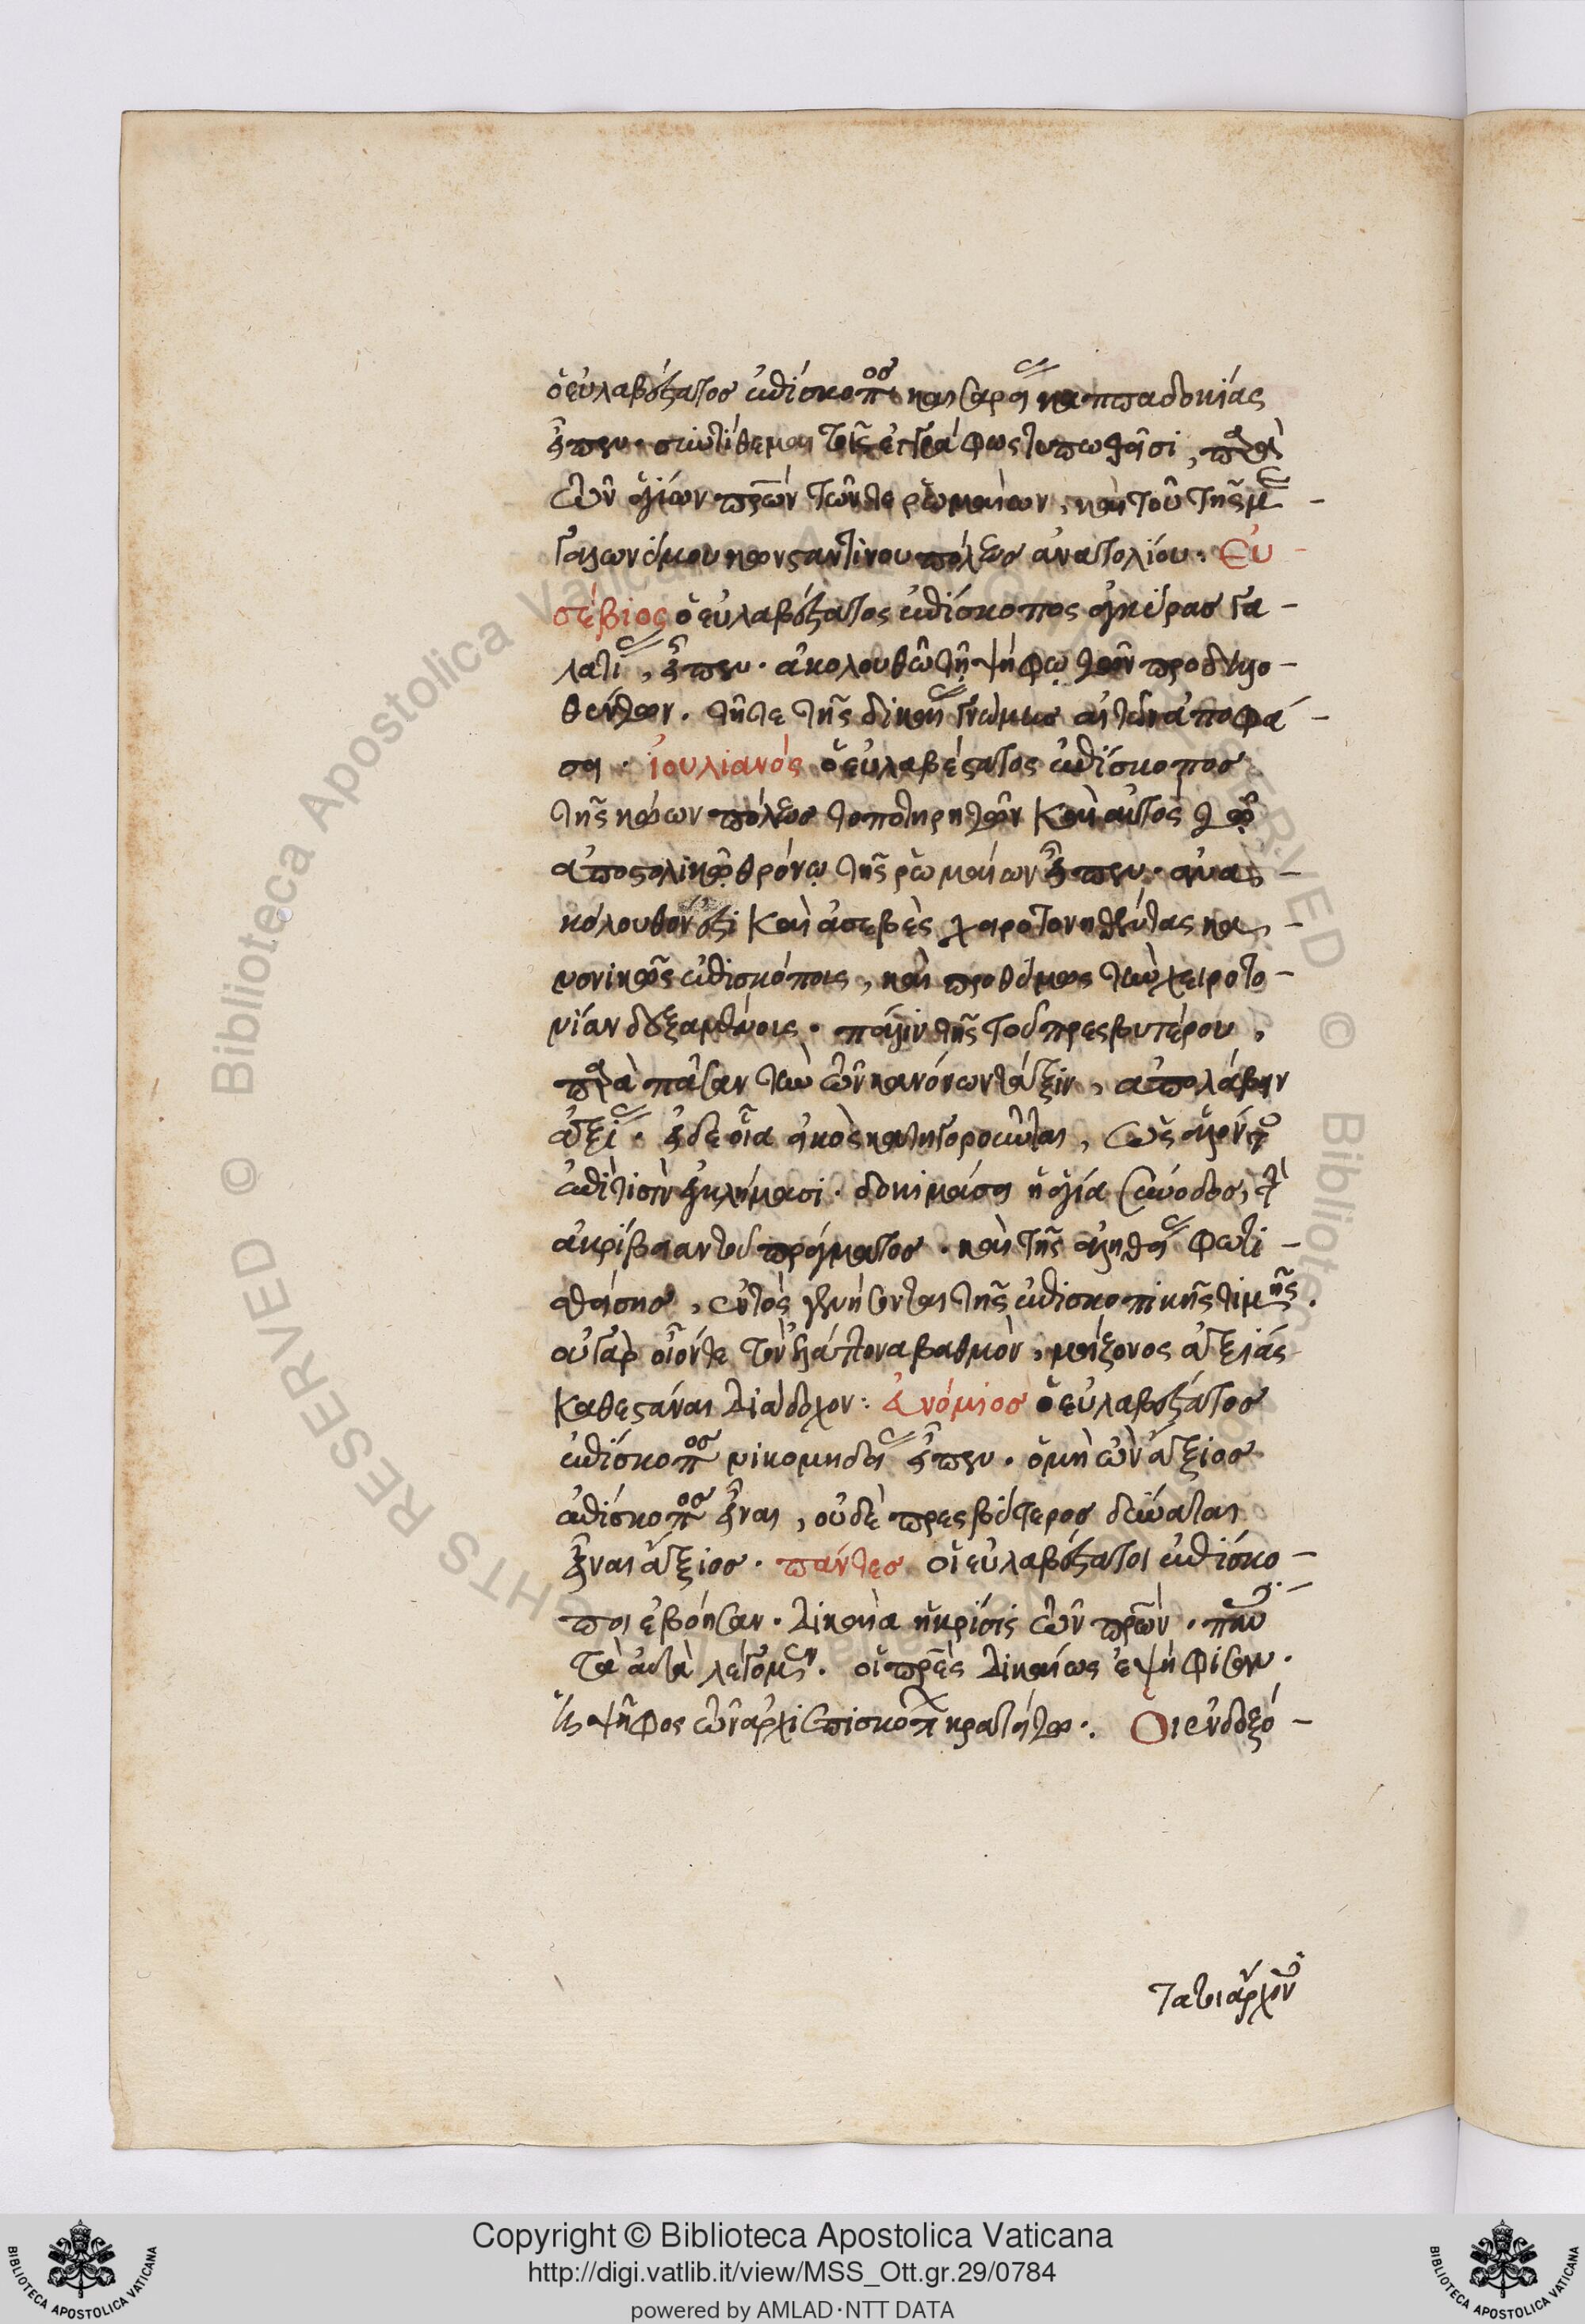 ὁ εὐλαβέστατος ἐπίσκοπος καισαρείας καππαδοκίας
εἶπεν. συντίθεμαι τοῖς ἐγγράφως τυπωθεῖσι, παρὰ
τῶν ἁγίων πρων τῶν τε ῥωμαίων, καὶ τοῦ τῆς με
γαλωνύμου κωνσταντίνου πόλεως ἀνατολίου. Εὐ
σέβιος ὁ εὐλαβέστατος ἐπίσκοπος ἀγκύρας γα
λατίας, εἶπεν. ἀκολουθῶ τῇ ψήφῳ τῶν προδηλω
θέντων. τῇ τε τῆς δικαίας γνώμης αὐτῶν ἀποφά
σει. ἰουλιανός ὁ εὐλαβέστατος ἐπίσκοπος
τῆς κώων πόλεως τοποτηρητῶν καὶ αὐτός τῷ
ἀποστολικῷ θρόνῳ τῆς ῥωμαίων εἶπεν. ἀνα
κόλουθόν ἐστι καὶ ἀσεβὲς χειροτονηθέντας κα
νονικῶς ἐπισκόποις, καὶ προθύμως τὴν χειροτο
νίαν δεξαμένοις. πάλιν τῆς τοῦ πρεσβυτέρου,
παρὰ πᾶσαν τὴν τῶν κανόνων τάξιν, ἀπολάβειν
ἀξίας. εἰ δὲ οἷα εἰκὸς κατηγοροῦνται,
ἐπί τισιν ἐγκλήμασι. δοκιμάσει ἡ ἁγία σύνοδος, τὸ
ἀκριβὲς αὐτοῦ πράγματος. καὶ τῆς ἀληθείας φωτι
σθείσης, ἐντὸς γενήσονται τῆς ἐπισκοπικῆς τιμῆς.
οὐ γὰρ οἷόν τε τὸν ἐλάττονα βαθμὸν, μείζονος ἀξίας
καθεστάναι διάδοχον: Εὐνόμιος ὁ εὐλαβέστατος
ἐπίσκοπος νικομηδείας εἶπεν. ὁ μὴ ὢν ἄξιος
ἐπίσκοπος εἶναι, οὐδὲ πρεσβύτερος δύναται
εἶναι ἄξιος. πάντες οἱ εὐλαβέστατοι ἐπίσκο
ποι ἐβόησαν. δικαία ἡ κρίσις τῶν πρων. πάντες
τὰ αὐτὰ λέγομεν. οἱ πρες δικαίως ἐψήφισαν.
ἡ ψῆφος τῶν ἀρχιεπισκόπων κρατείτω. Οἱ ἐνδοξό
τατοι ἄρχον